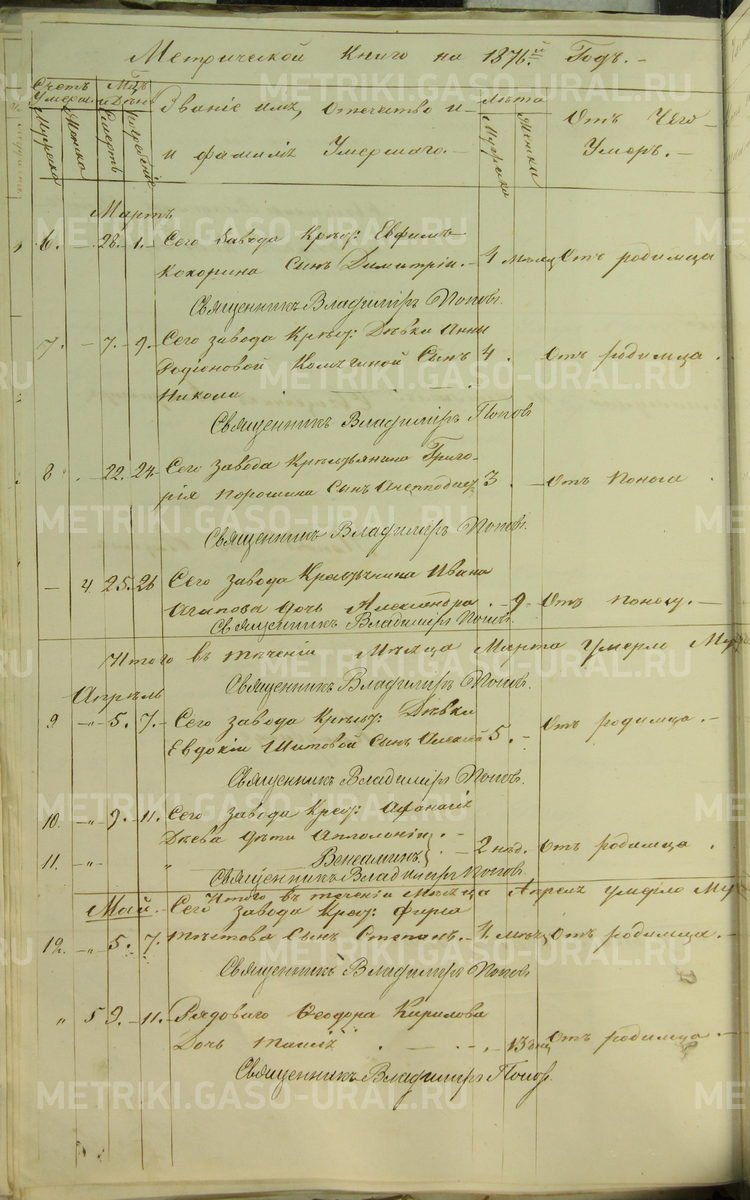 Метрической Книго на 1876й Годъ. -
Счетъ Умершихъ
Мужеска
Женска
Мцъ и День
Смерть
Погребеніе
Званіе имя, отечество и фамилія Умершаго. -
Лѣта
Мужеска
Женска
Отъ Чего Умеръ. -
Мартъ
6. 28. - 1. - Сего Завода Крест: Евфима
Кокорина Сынъ Димитрій. - 4 мѣсяц Отъ родимца
Священникъ Владиміръ Поповъ.
7. - 7. - 9. - Сего завода Крест: Дѣвки Анны
Родіоновой Сынъ 4. Отъ родимца.
Никола
Священникъ Владиміръ Попов
8 . 22. 24. Сего завода Крестьянина Григо-
рія Порошина Сынъ 3. - Отъ Поноса
Священникъ Владиміръ Поповъ.
- 4. 25. 26 Сего завода Крестьянина Ивана
Агапова дочь Александра. - 9 - Отъ Поносу. -
Священникъ Владиміръ Поповъ.
Итого въ теченіи Мѣсяца Марта умерло Му
Священникъ Владиміръ Поповъ.
Апрѣль
9 - " - 5. 7. - Сего завода Крест: Дѣвки
Евдокіи Шитовой Сынъ Алексей 5. - Отъ родимца. -
Священникъ Владиміръ Поповъ.
10. - " - 9. - 11. Сего завода Крест: Афанасія
дѣти Апполоній. -
11. - " - " Веніаминъ - 2 нед. - Отъ родимца.
Священникъ Владиміръ Поповъ
Итого въ теченіи Мѣсяца Апреля умерло Му
Май. - Сего завода Крест: Фирса
12. - " - 5. 7. Сынъ Степанъ. - 4 месец Отъ родимца. -
Священникъ Владиміръ Поповъ
" 5 9. - 11. - Рядоваго Феодора Кирилова
Дочь Таисія - 13 дней Отъ родимца. -
Священникъ Владиміръ Попов.
METRIKI.GASO-URAL.RU